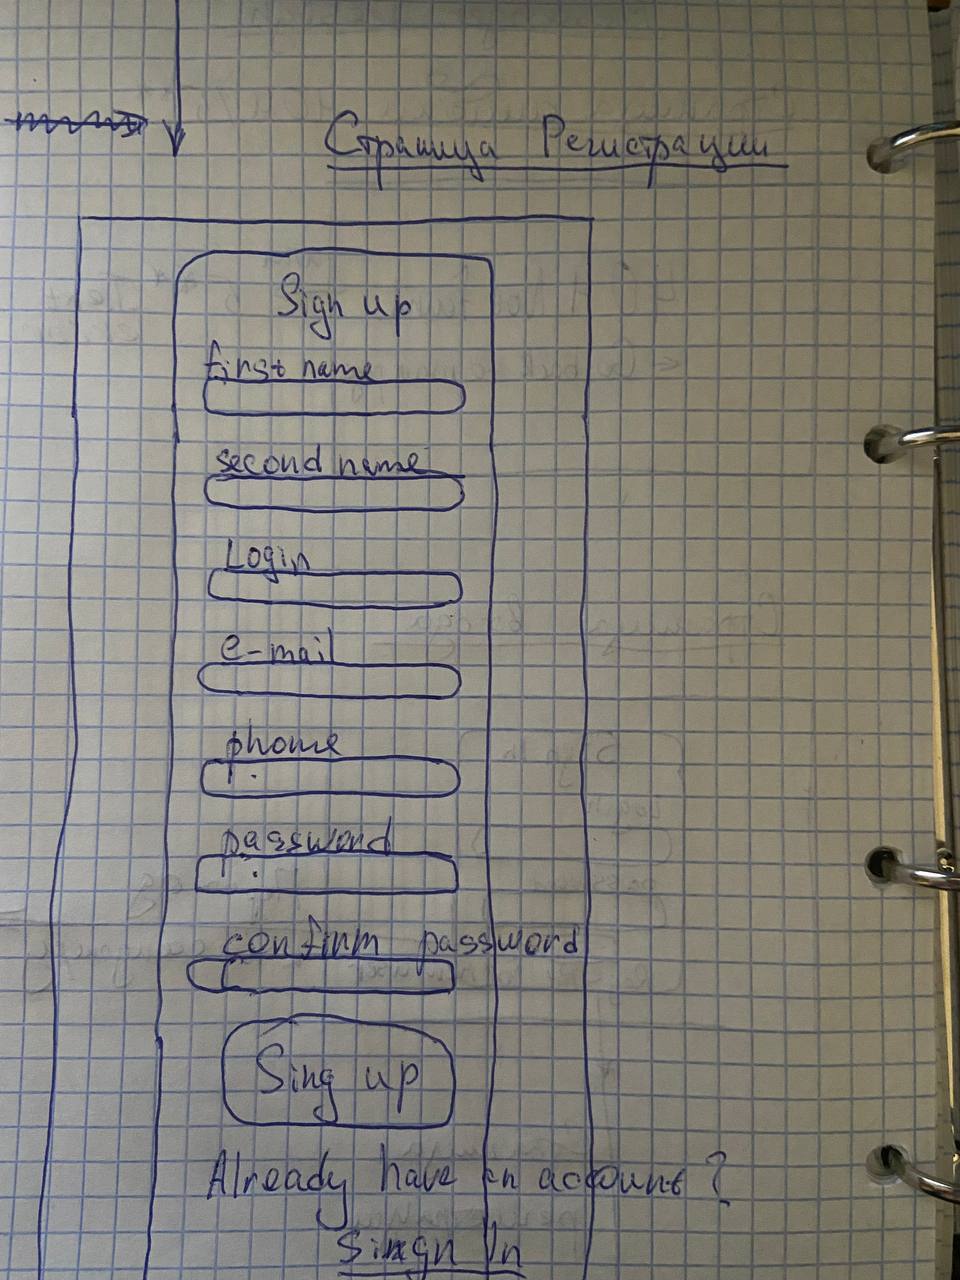 Страница Регистрации
Sign up
first name
second name
Login
e-mail
phone
password
confirm password
Sing up
Already have an account?
Sign In